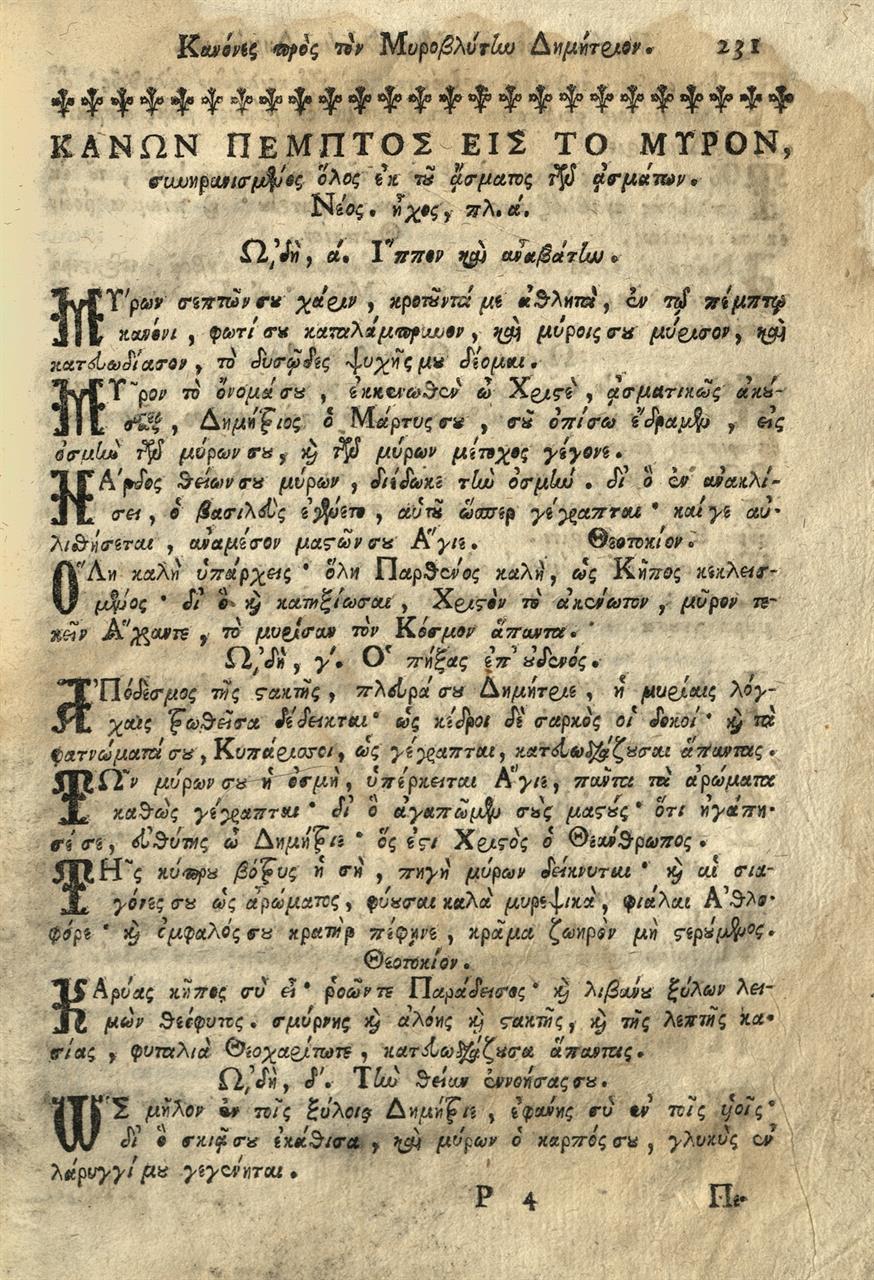 Κανόνες πρὸς τὸν Μυροβλύτην Δημήτριον. 231
ΚΑΝΩΝ ΠΕΜΠΤΟΣ ΕΙΣ ΤΟ ΜΥΡΟΝ,
συνηρανισμένος ὅλος ἐκ τοῦ ᾄσματος τῶν ᾀσμάτων.
Νέος. ἦχος, πλ. ά.
Ὠδὴ, ά. Ἵππον καὶ ἀναβάτην.
ΜΎρων σεπτῶν σου χάριν, κροτοῦντά με ἀθλητὰ, ἐν τῷ πέμπτῳ
κανόνι, φωτί σου καταλάμπρυνον, καὶ μύροις σου μύρισον, καὶ
κατευωδίασον, τὸ δυσῶδες ψυχῆς μου δέομαι.
ΜΥ͂ρον τὸ ὄνομά σου, ἐκκενωθὲν ὦ Χριστὲ, ᾀσματικῶς ἀκού-
σας, Δημήτριος ὁ Μάρτυς σου, σοῦ ὀπίσω ἔδραμεν, εἰς
ὀσμὴν τῶν μύρων σου, καὶ τῶν μύρων μέτοχος γέγονε.
ΝΆρδος θείων σου μύρων, διέδωκε τὴν ὀσμήν. δι' ὃ ἐν ἀνακλί-
σει, ὁ βασιλεὺς ἐγένετο, αὐτοῦ ὥσπερ γέγραπται· καί γε αὐ-
λιθήσεται, ἀναμέσον μαστῶν σου Ἅγιε. Θεοτοκίον.
ὍΛη καλὴ ὑπάρχεις· ὅλη Παρθένος καλὴ, ὡς Κῆπος κεκλεισ-
μένος· δι' ὃ καὶ κατηξίωσαι, Χριστὸν τὸ ἀκένωτον, μῦρον τε-
κεῖν Ἄχραντε, τὸ μυρίσαν τὸν Κόσμον ἅπαντα.
Ὠδὴ, γ'. Ὁ πήξας ἐπ' οὐδενός.
ἈΠόδεσμος τῆς στακτῆς, πλευρά σου Δημήτριε, ἡ μυρίαις λόγ-
χαις τρωθεῖσα δέδεικται· ὡς κέδροι δὲ σαρκὸς οἱ δοκοί· καὶ τὰ
φατνώματά σου, Κυπάρισσοι, ὡς γέγραπται, κατευωδιάζουσαι ἅπαντας.
ΤΩ͂ν μύρων σου ἡ ὀσμὴ, ὑπέρκειται Ἅγιε, πάντα τὰ ἀρώματα
καθὼς γέγραπται· δι' ὃ ἀγαπῶμεν σοὺς μαστούς· ὅτι ἠγάπη-
σέ σε, εὐθύτης ὦ Δημήτριε· ὅς ἐστι Χριστὸς ὁ Θεάνθρωπος.
ΤΗ͂ς κύπρου βότρυς ἡ σὴ, πηγὴ μύρων δείκνυται· καὶ αἱ σια-
γόνες σου ὡς ἀρώματος, φύουσαι καλὰ μυρεψικὰ, φιάλαι Ἀθλο-
φόρε· καὶ ὀμφαλός σου κρατὴρ πέφηνε, κρᾶμα ζωηρὸν μὴ στερούμενος.
Θεοτοκίον.
ΚΑρύας κῆπος σὺ εἶ· ῥοῶν τε Παράδεισος· καὶ λιβάνου ξύλων λει-
μὼν θεόφυτος. σμύρνης καὶ ἀλόης καὶ στακτῆς, καὶ τῆς λεπτῆς κα-
σίας, φυταλιὰ Θεοχαρίτωτε, κατευωδιάζουσα ἅπαντας.
Ὠδὴ, δ'. Τὴν θείαν ἐννοήσας σου.
ὩΣ μῆλον ἐν τοῖς ξύλοις Δημήτριε, ἐφάνης σὺ ἐν τοῖς υἱοῖς·
δι' ὃ σκιᾷ σου ἐκάθισα, καὶ μύρων ὁ καρπός σου, γλυκὺς ἐν
λάρυγγί μου γεγένηται.
Ρ 4 Πε-